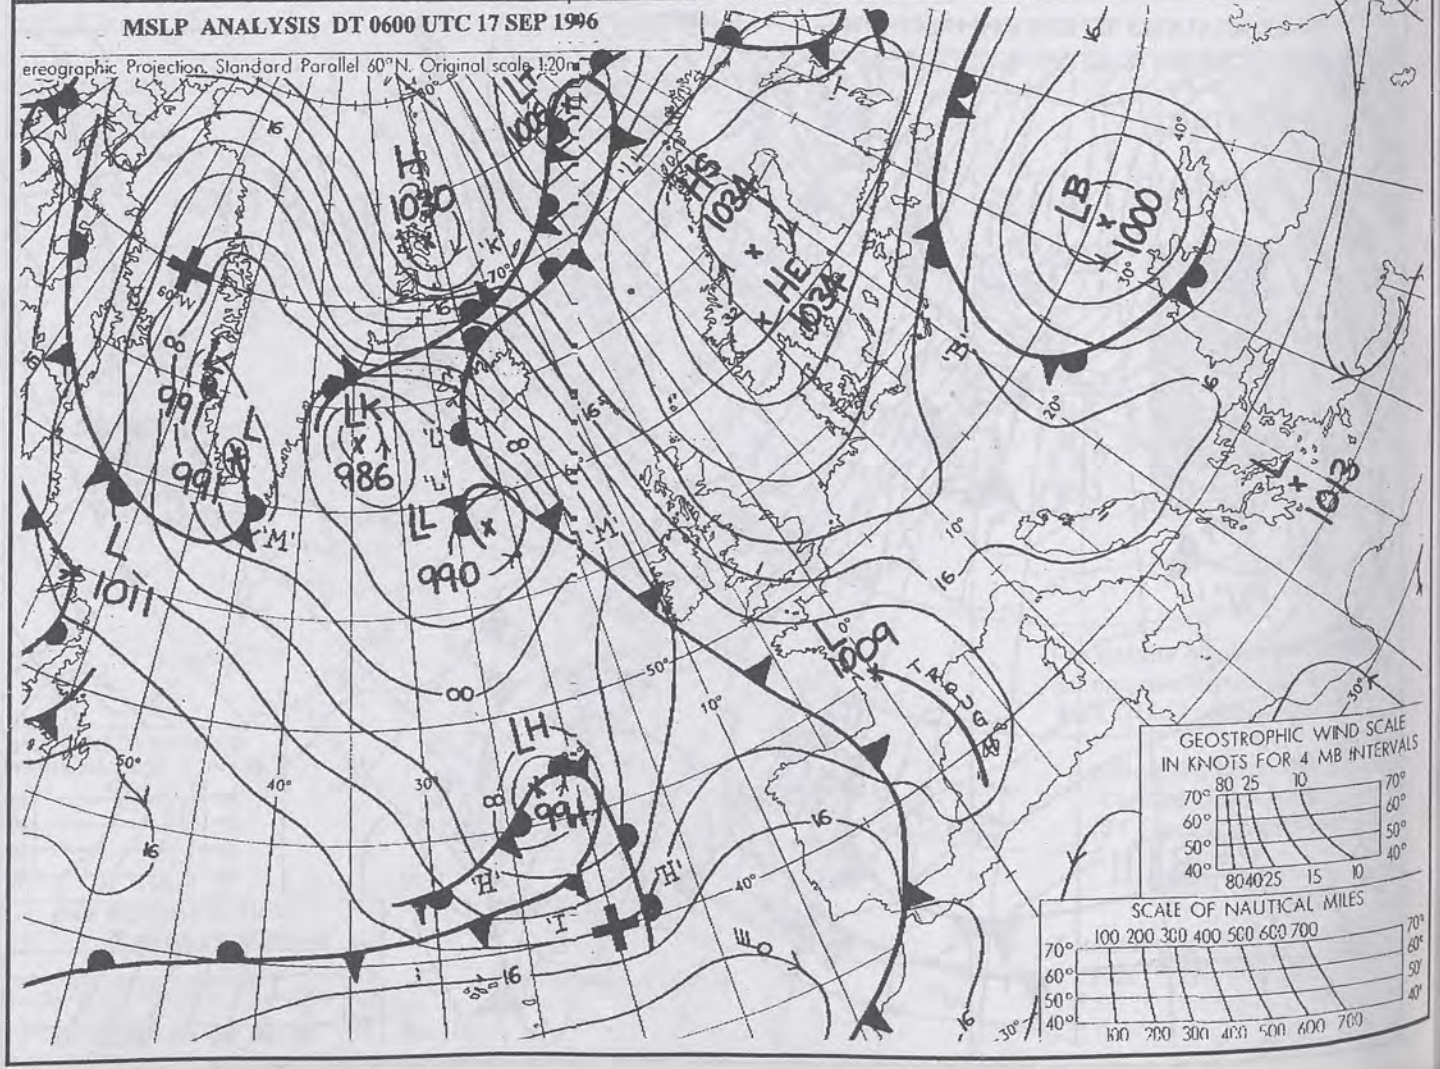 MSLP ANALYSIS DT 0600 UTC 17 SEP 1996
ereographic Projection. Standard Parallel 60°N. Original scale 1:20m
80°
16
H
1030
'K'
70°
16
HS
1034
HE
1034
40°
LB
1000
30°
'B'
60°W
8
L
991
LK
986
'L'
'L'
16
8
20°
16
L
991
LL
990
'M'
'M'
L
1013
10°
16
L
1011
0°
L
1009
TAQUG
8
50°
10°
30°
LH
991
8
50°
40°
30
16
16
'H'
'H'
40°
'T'
16
16
30°
GEOSTROPHIC WIND SCALE
IN KNOTS FOR 4 MB INTERVALS
80 25 10
70° 70°
60° 60°
50° 50°
40° 40°
80 40 25 15 10
SCALE OF NAUTICAL MILES
100 200 300 400 500 600 700
70° 70°
60° 60°
50° 50°
40° 40°
100 200 300 400 500 600 700